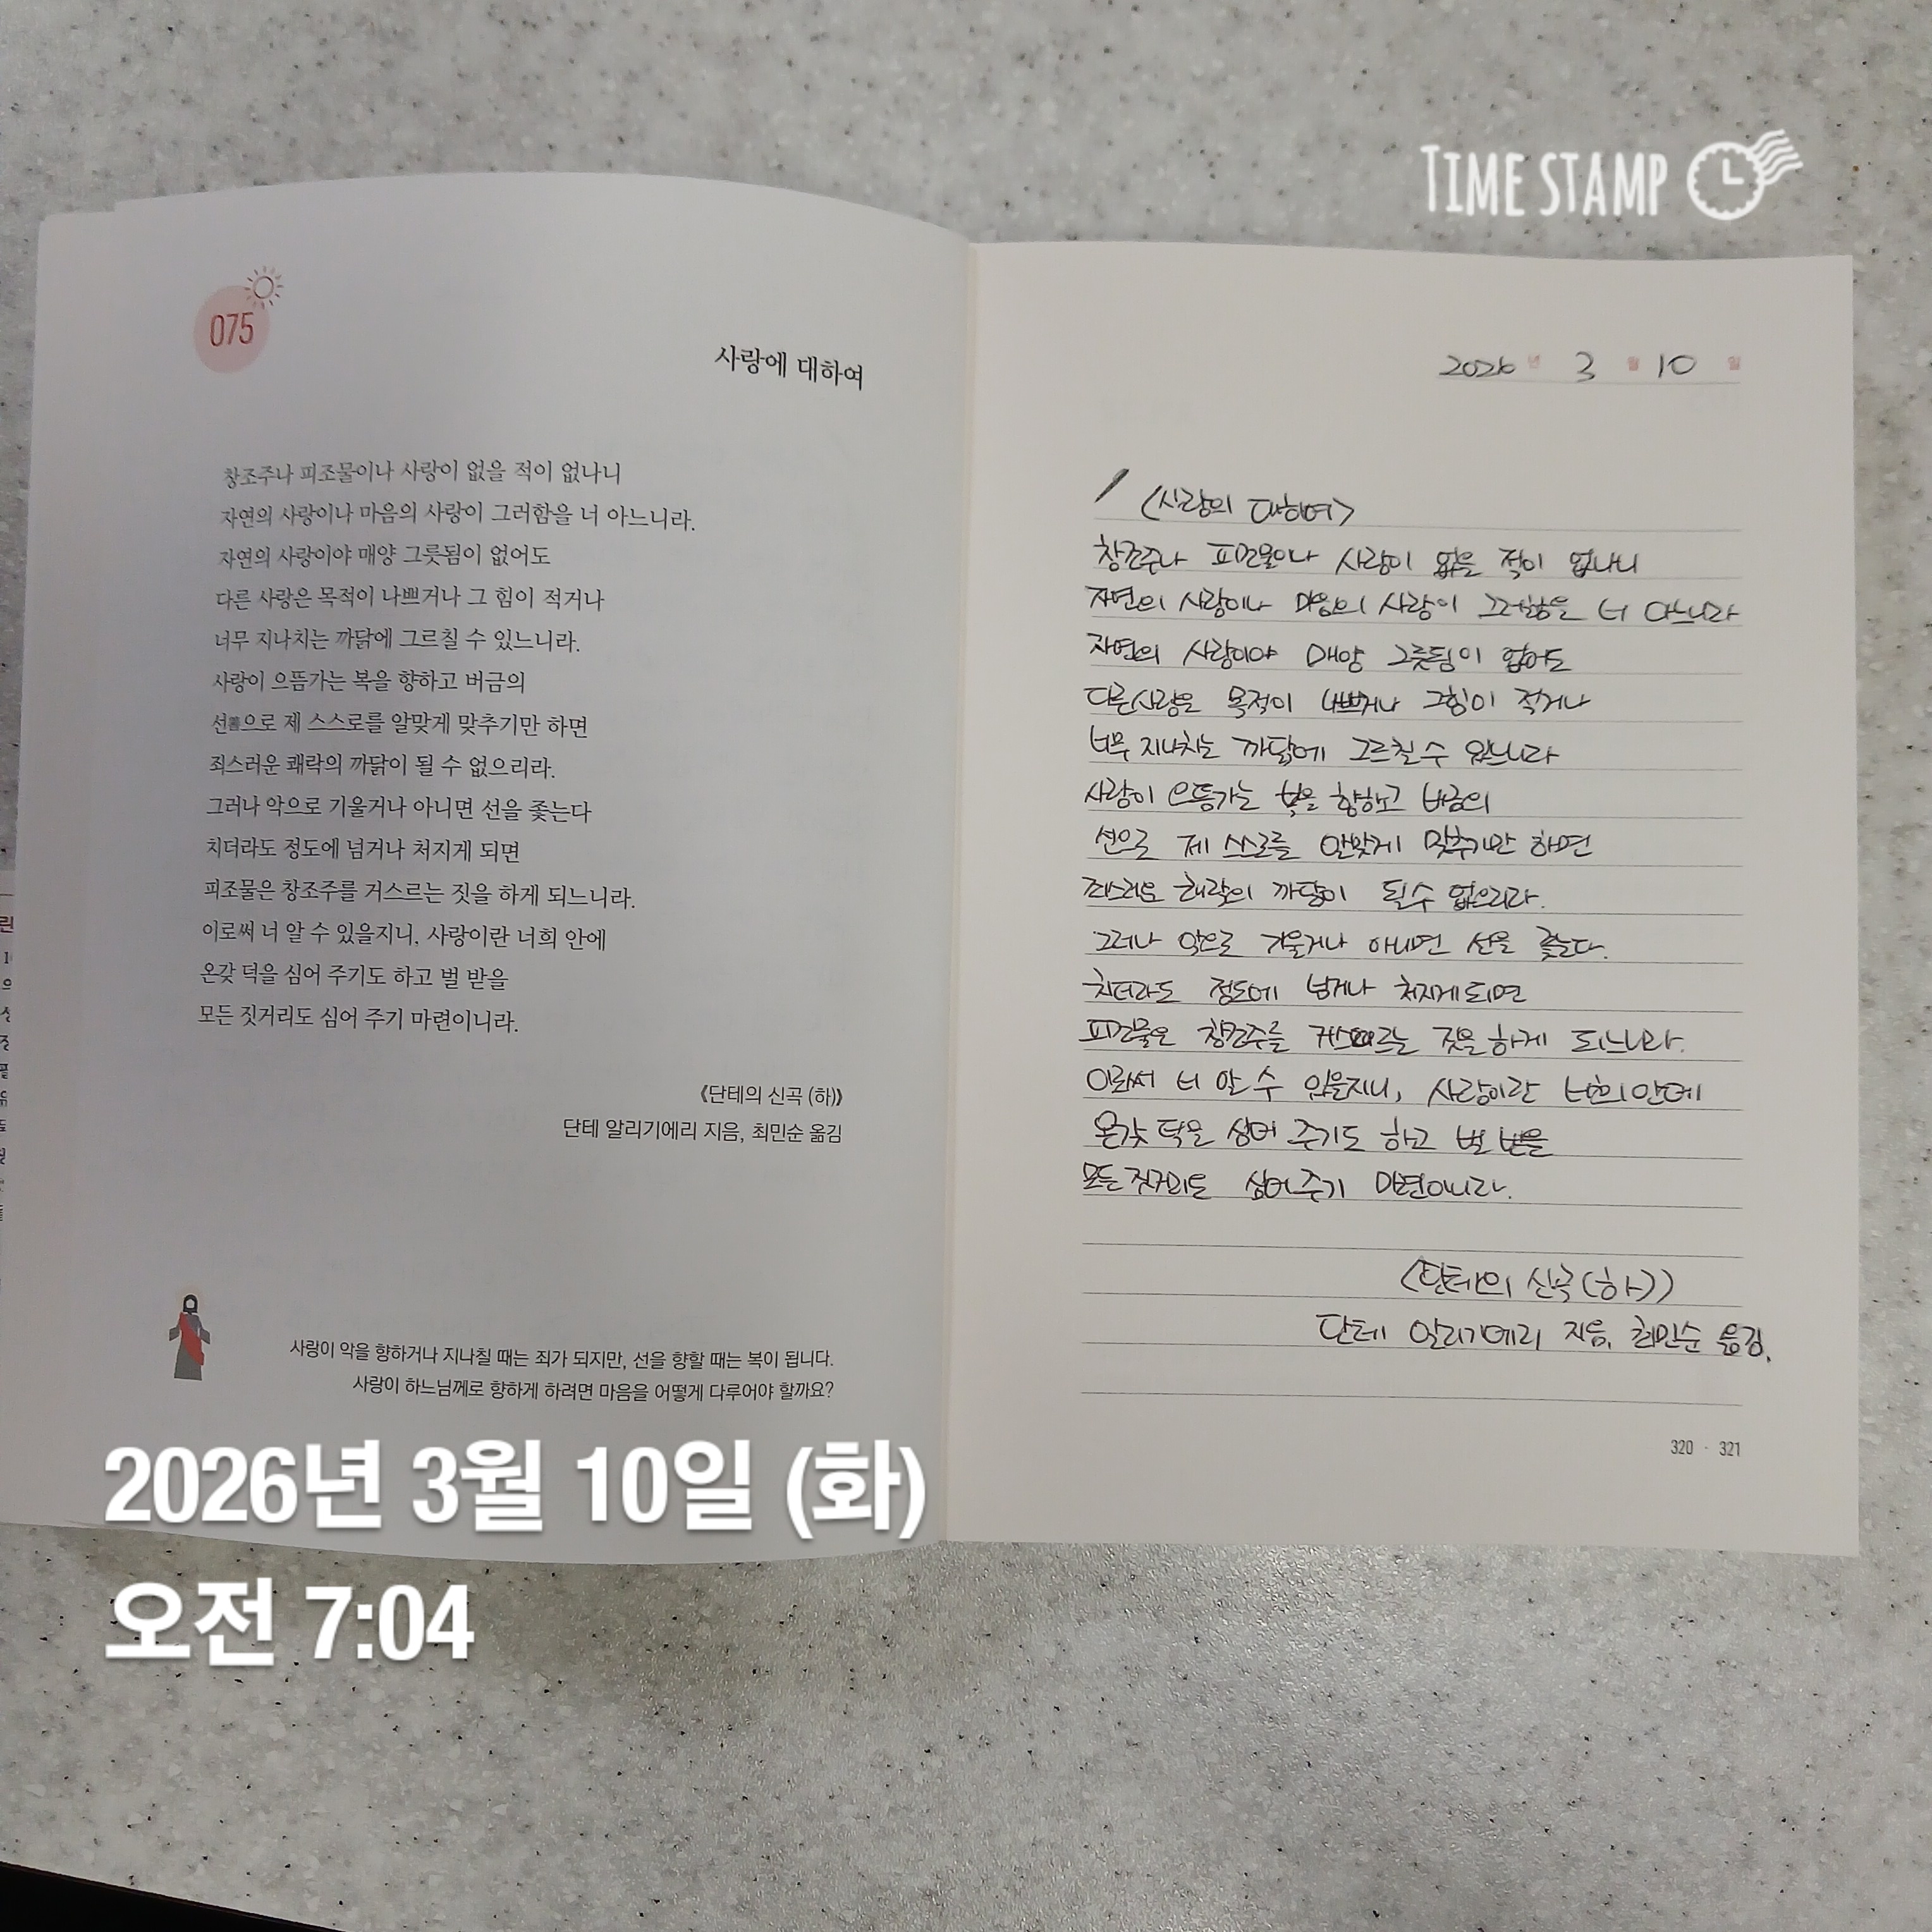 TIME STAMP
075
사랑에 대하여
창조주나 피조물이나 사랑이 없을 적이 없나니
자연의 사랑이나 마음의 사랑이 그러함을 너 아느니라.
자연의 사랑이야 매양 그릇됨이 없어도
다른 사랑은 목적이 나쁘거나 그 힘이 적거나
너무 지나치는 까닭에 그르칠 수 있느니라.
사랑이 으뜸가는 복을 향하고 버금의
선善으로 제 스스로를 알맞게 맞추기만 하면
죄스러운 쾌락의 까닭이 될 수 없으리라.
그러나 악으로 기울거나 아니면 선을 좇는다
치더라도 정도에 넘거나 처지게 되면
피조물은 창조주를 거스르는 짓을 하게 되느니라.
이로써 너 알 수 있을지니, 사랑이란 너희 안에
온갖 덕을 심어 주기도 하고 벌 받을
모든 짓거리도 심어 주기 마련이니라.
《단테의 신곡 (하)》
단테 알리기에리 지음, 최민순 옮김
사랑이 악을 향하거나 지나칠 때는 죄가 되지만, 선을 향할 때는 복이 됩니다.
사랑이 하느님께로 향하게 하려면 마음을 어떻게 다루어야 할까요?
2026 년 3 월 10 일
<사랑의 대하여>
창조주나 피조물이나 사랑이 없을 적이 없나니
자연의 사랑이나 마음의 사랑이 그러함을 너 아느니라
자연의 사랑이야 매양 그릇됨이 없어도
다른사랑은 목적이 나쁘거나 그힘이 적거나
너무 지나치는 까닭에 그르칠 수 있느니라
사랑이 으뜸가는 복을 향하고 버금의
선으로 제 스스로를 알맞게 맞추기만 하면
죄스러운 쾌락의 까닭이 될 수 없으리라.
그러나 악으로 기울거나 아니면 선을 좇는다.
치더라도 정도에 넘거나 처지게 되면
피조물은 창조주를 거스르는 짓을 하게 되느니라.
이로써 너 알 수 있을지니, 사랑이란 너희 안에
온갖 덕을 심어 주기도 하고 벌 받을
모든 짓거리도 심어 주기 마련이니라.
<단테의 신곡(하)>
단테 알리기에리 지음, 최민순 옮김.
320 · 321
2026년 3월 10일 (화)
오전 7:04